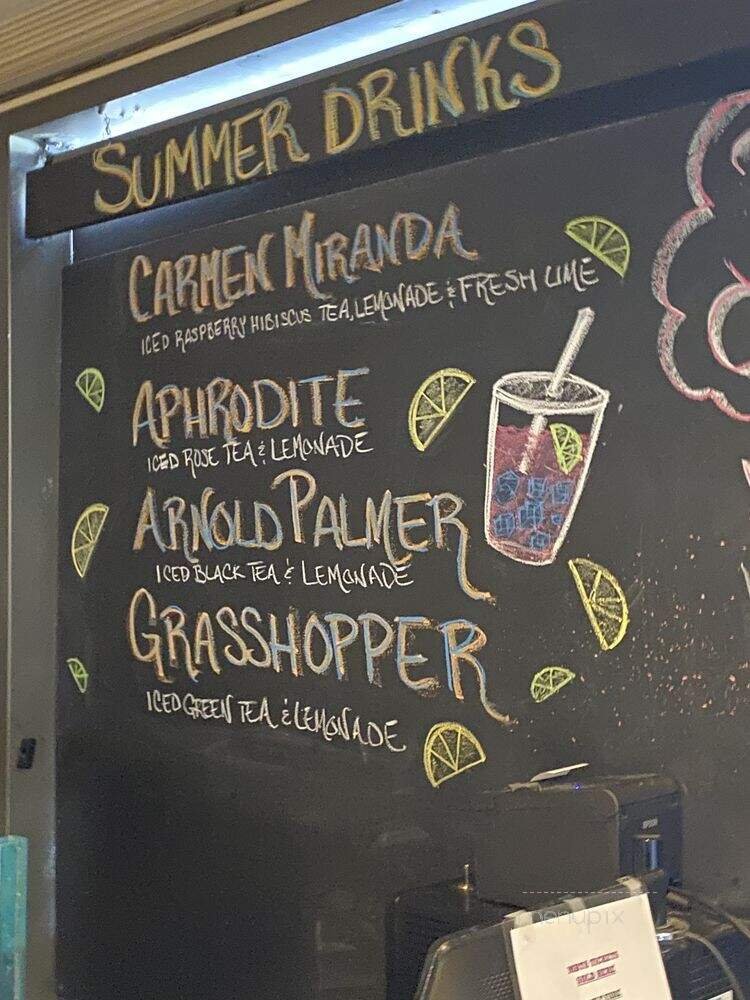 SUMMER DRINKS
CARMEN MIRANDA
ICED RASPBERRY HIBISCUS TEA, LEMONADE & FRESH LIME
APHRODITE
ICED ROSE TEA & LEMONADE
ARNOLD PALMER
ICED BLACK TEA & LEMONADE
GRASSHOPPER
ICED GREEN TEA & LEMONADE
EPSON
menupix